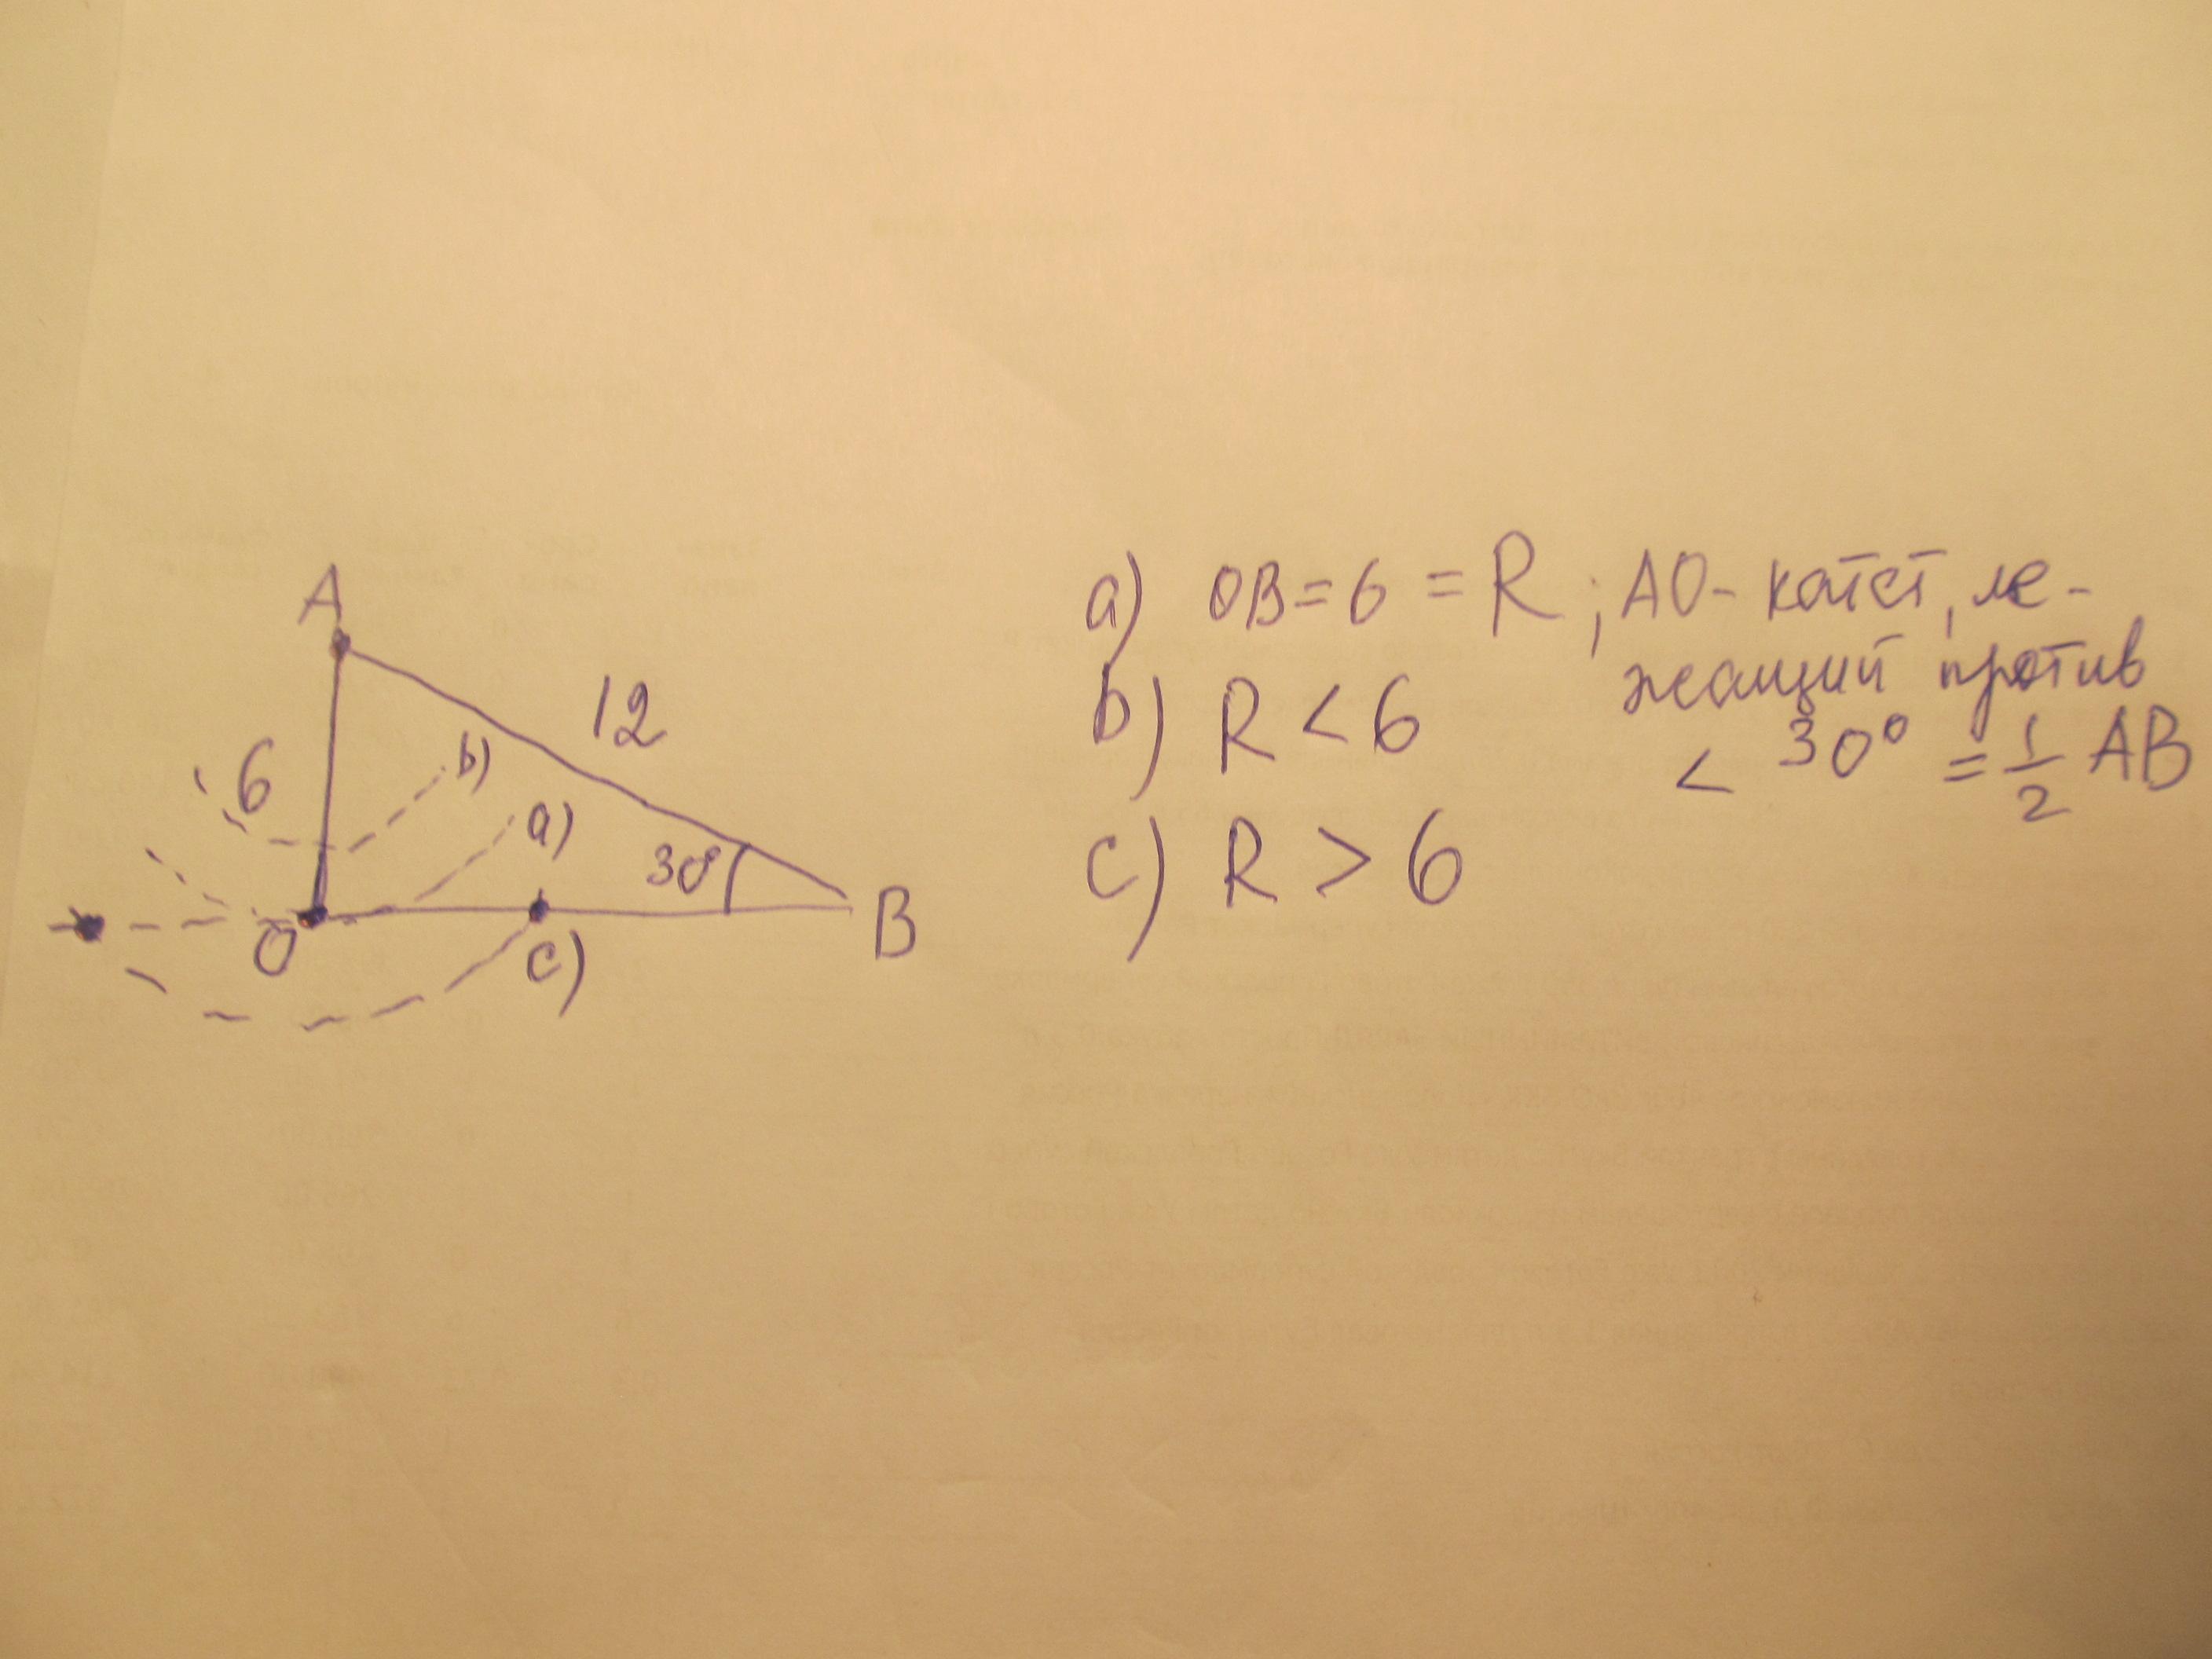 A
12
6
b)
a)
30°
O
c)
B
a) OB = 6 = R ; AO - катет, ле-
жащий против
< 30° = 1/2 AB
b) R < 6
c) R > 6